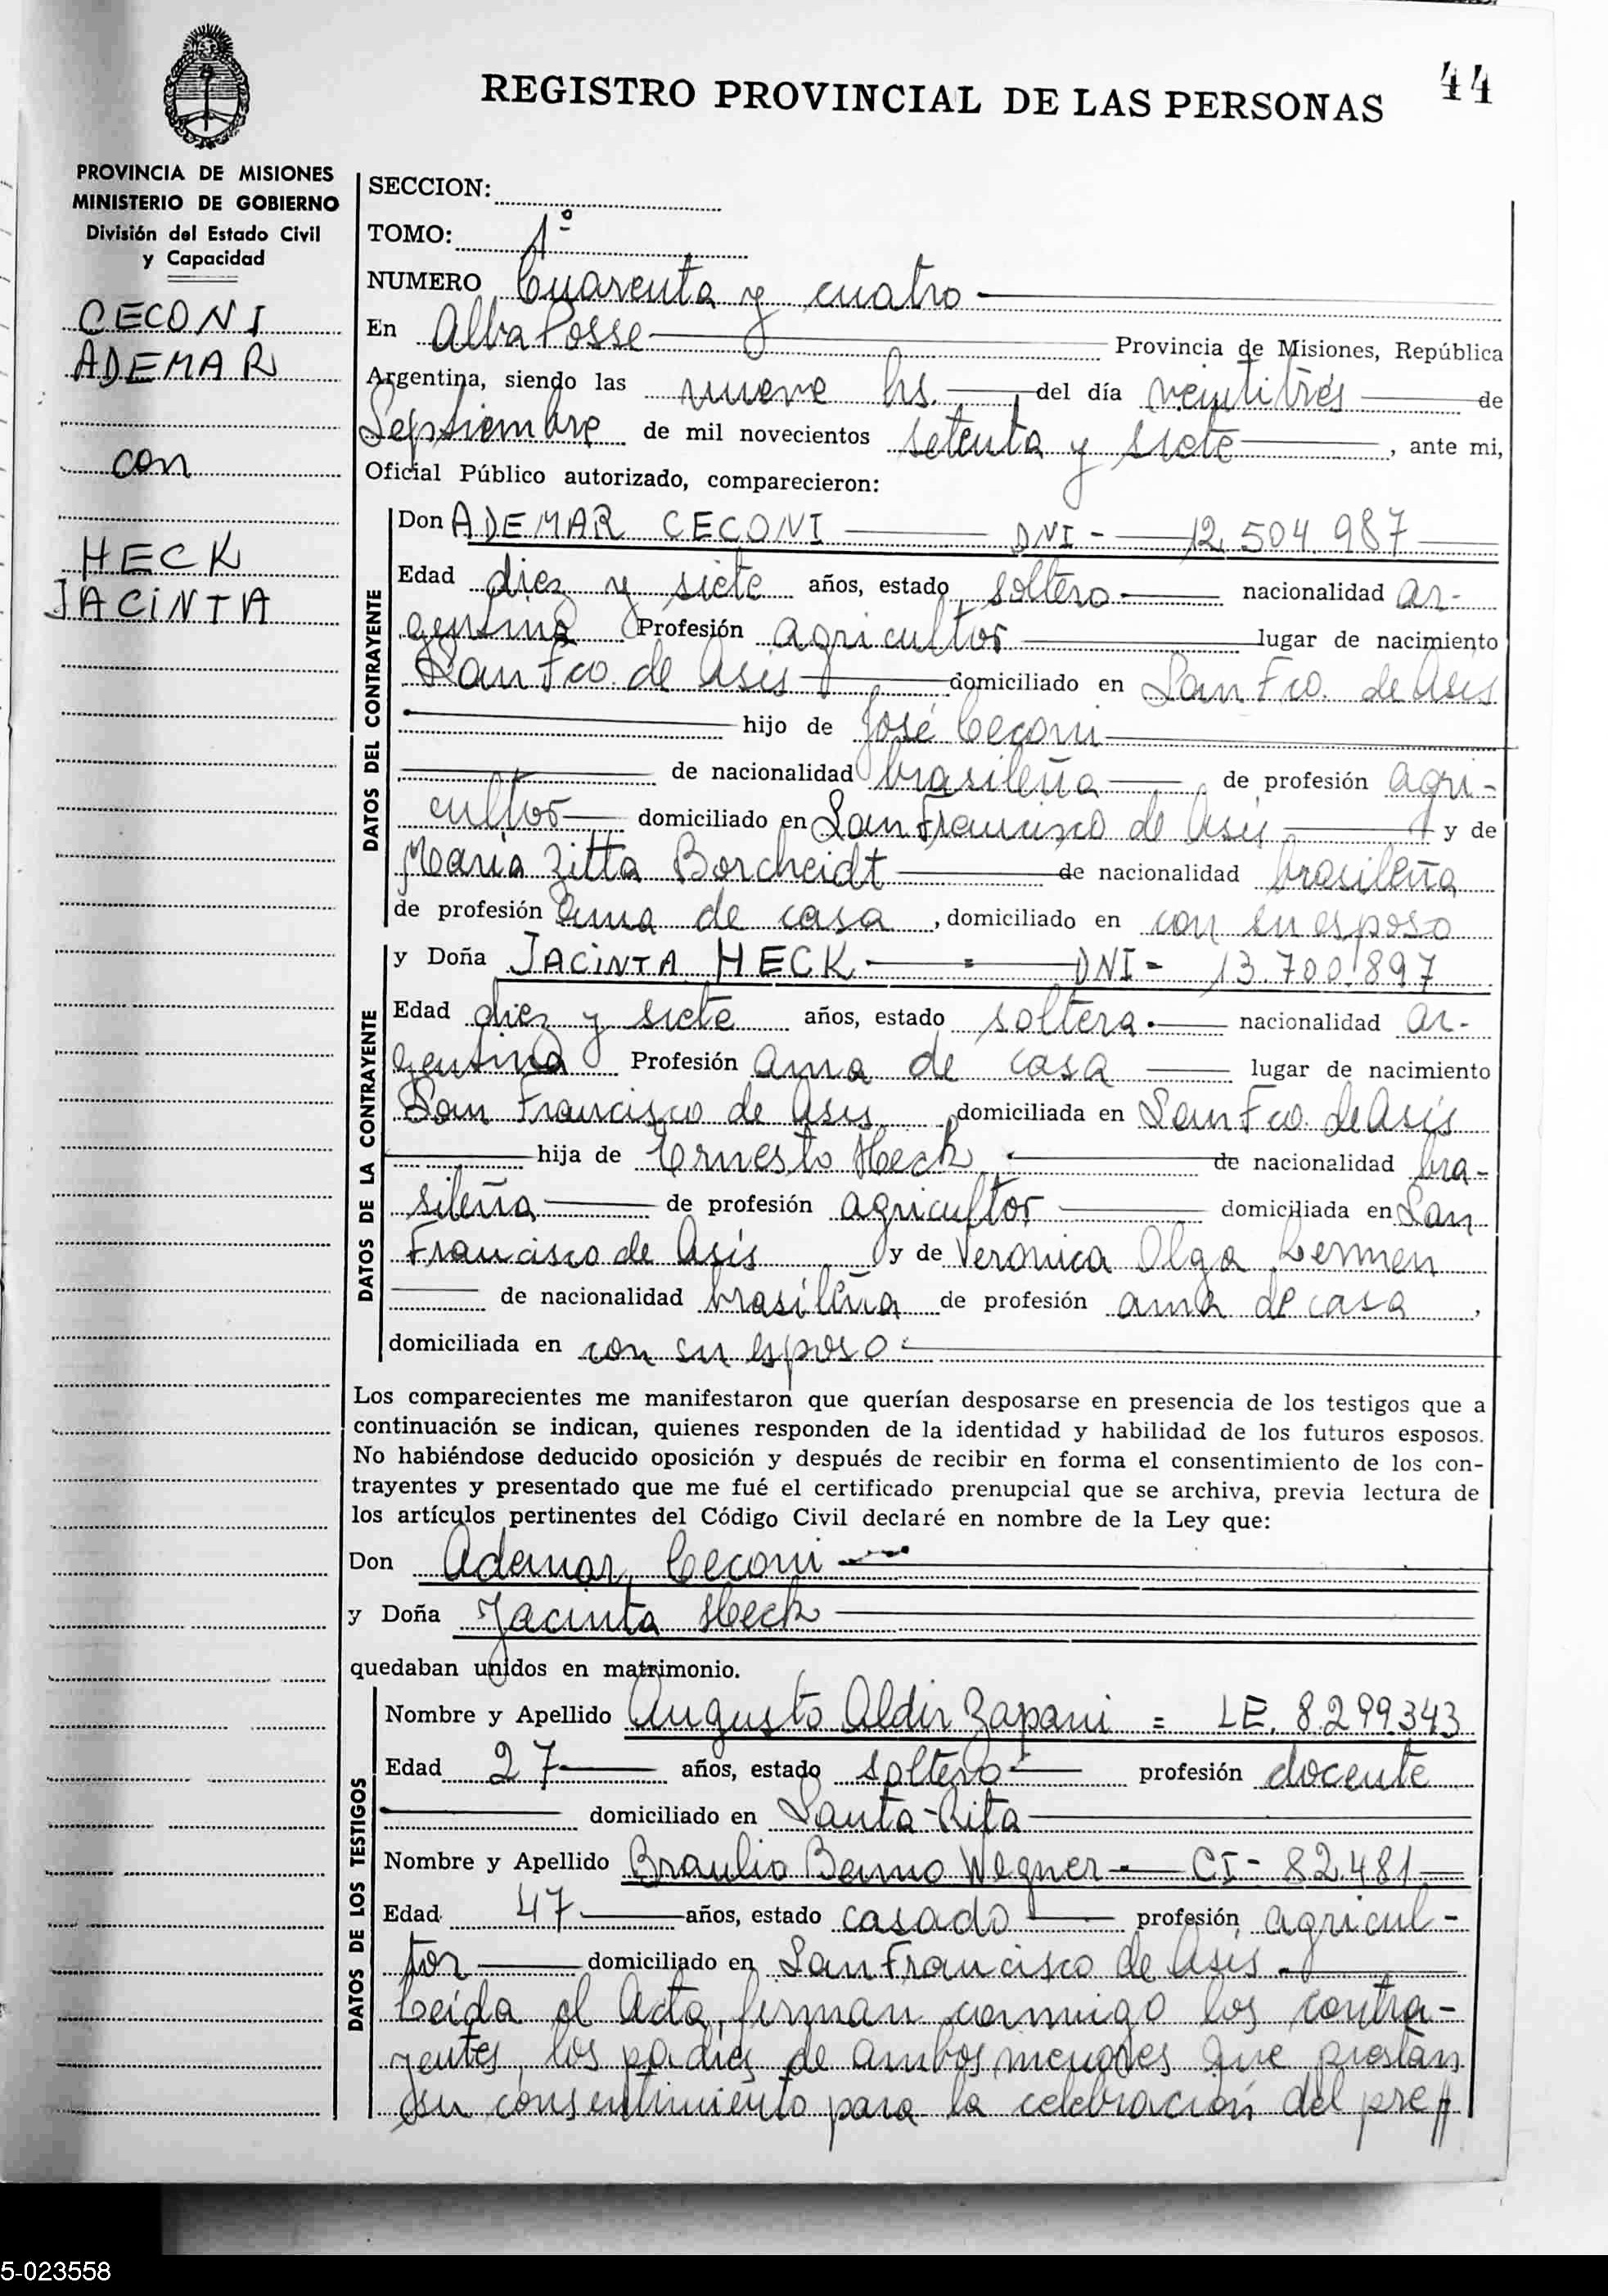 44
REGISTRO PROVINCIAL DE LAS PERSONAS
PROVINCIA DE MISIONES
MINISTERIO DE GOBIERNO
División del Estado Civil
y Capacidad
CECONI
ADEMAR
con
HECK
JACINTA
SECCION:
TOMO: 1º
NUMERO Cuarenta y cuatro
En Alba Posse Provincia de Misiones, República
Argentina, siendo las nueve hs. del día veintitrés de
Septiembre de mil novecientos setenta y siete, ante mi,
Oficial Público autorizado, comparecieron:
DATOS DEL CONTRAYENTE
Don ADEMAR CECONI DNI - 12.504.987
Edad diez y siete años, estado soltero nacionalidad ar-
gentina Profesión agricultor lugar de nacimiento
San Fco. de Asis domiciliado en San Fco. de Asis
hijo de José Ceconi
de nacionalidad brasileña de profesión agri-
cultor domiciliado en San Francisco de Asis y de
Maria Zitta Borcheidt de nacionalidad brasileña
de profesión ama de casa, domiciliado en con su esposo
DATOS DE LA CONTRAYENTE
y Doña JACINTA HECK DNI - 13.700.897
Edad diez y siete años, estado soltera nacionalidad ar-
gentina Profesión ama de casa lugar de nacimiento
San Francisco de Asis domiciliada en San Fco. de Asís
hija de Ernesto Heck de nacionalidad bra-
sileña de profesión agricultor domiciliada en San
Francisco de Asís y de Veronica Olga Lermen
de nacionalidad brasileña de profesión ama de casa,
domiciliada en con su esposo
Los comparecientes me manifestaron que querían desposarse en presencia de los testigos que a
continuación se indican, quienes responden de la identidad y habilidad de los futuros esposos.
No habiéndose deducido oposición y después de recibir en forma el consentimiento de los con-
trayentes y presentado que me fué el certificado prenupcial que se archiva, previa lectura de
los artículos pertinentes del Código Civil declaré en nombre de la Ley que:
Don Ademar Ceconi
y Doña Jacinta Heck
quedaban unidos en matrimonio.
DATOS DE LOS TESTIGOS
Nombre y Apellido Augusto Aldir Zapani = LE. 8.299.343
Edad 27 años, estado soltero profesión docente
domiciliado en Santa Rita
Nombre y Apellido Braulio Benno Wegner - CI - 82.481
Edad 47 años, estado casado profesión agricul-
tor domiciliado en San Francisco de Asis.
Leída el Acta, firman conmigo los contra-
yentes, los padres de ambos menores que prestan
su consentimiento para la celebración del pre//
5-023558